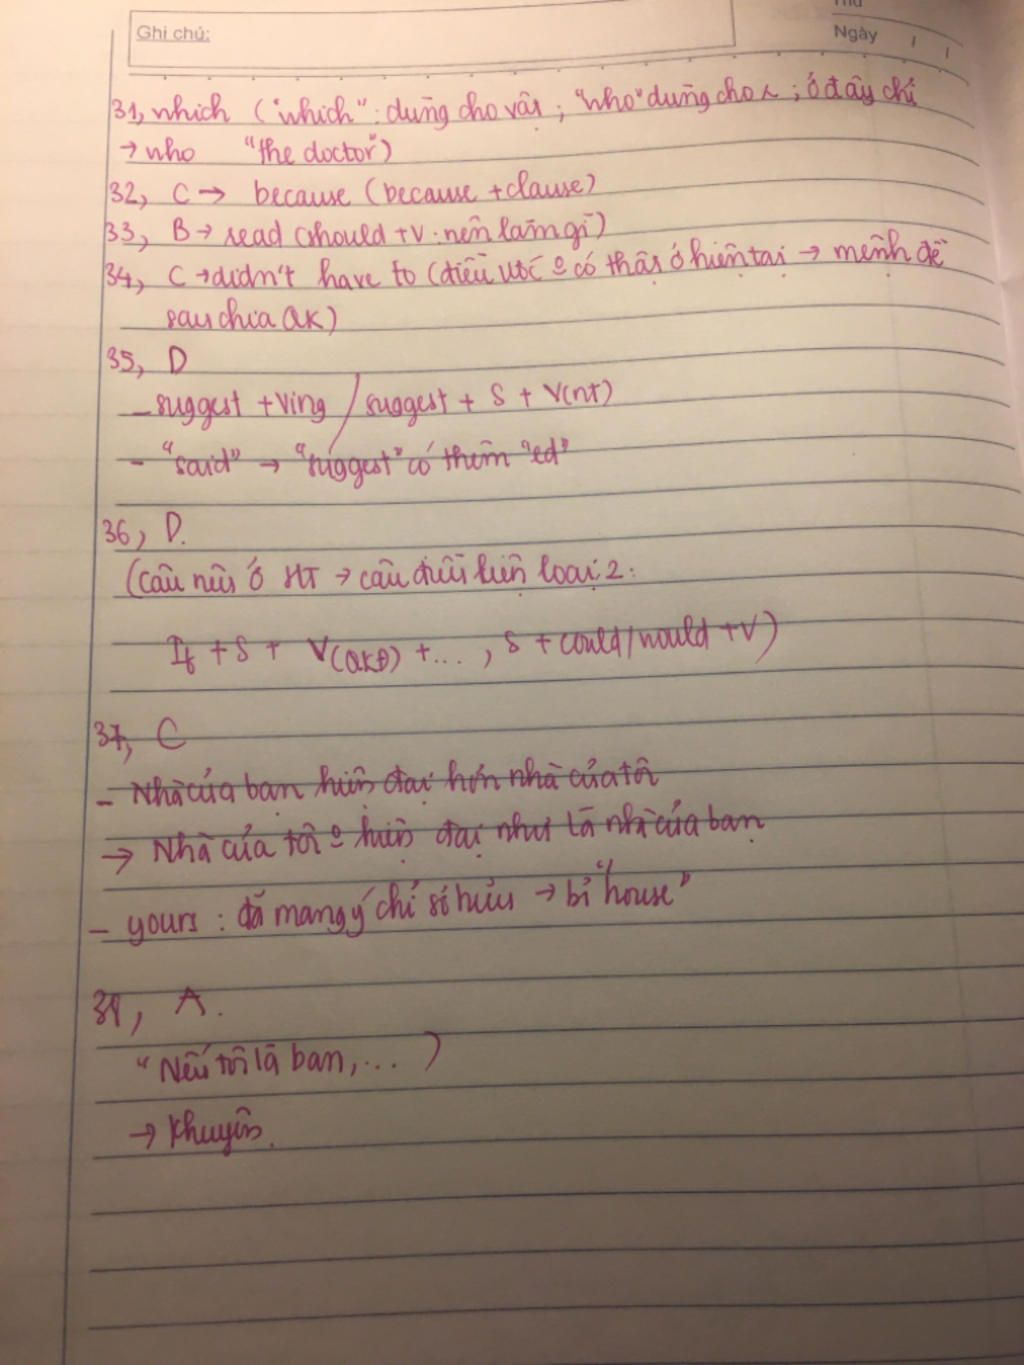 Thứ
Ghi chú:
Ngày / /
31, which ("which": dùng cho vật; "who" dùng cho ; ở đây chỉ
→ who "the doctor")
32, C → because (because + clause)
33, B → read (should + V: nên làm gì)
34, C → didn't have to (điều ước o có thật ở hiện tại → mệnh đề
sau chia QK)
35, D
- suggest + Ving / suggest + S + V(nt)
- "said" → "suggest" có thêm "ed"
36, D.
(Câu nếu ở HT → câu điều kiện loại 2:
If + S + V(QKĐ) + ..., S + could/would + V)
37, C
- Nhà của bạn hiện đại hơn nhà của tôi
→ Nhà của tôi o hiện đại như là nhà của bạn
- yours: đã mang ý chỉ sở hữu → bỏ "house"
A.
"Nếu tôi là bạn, ... )
→ Khuyên.